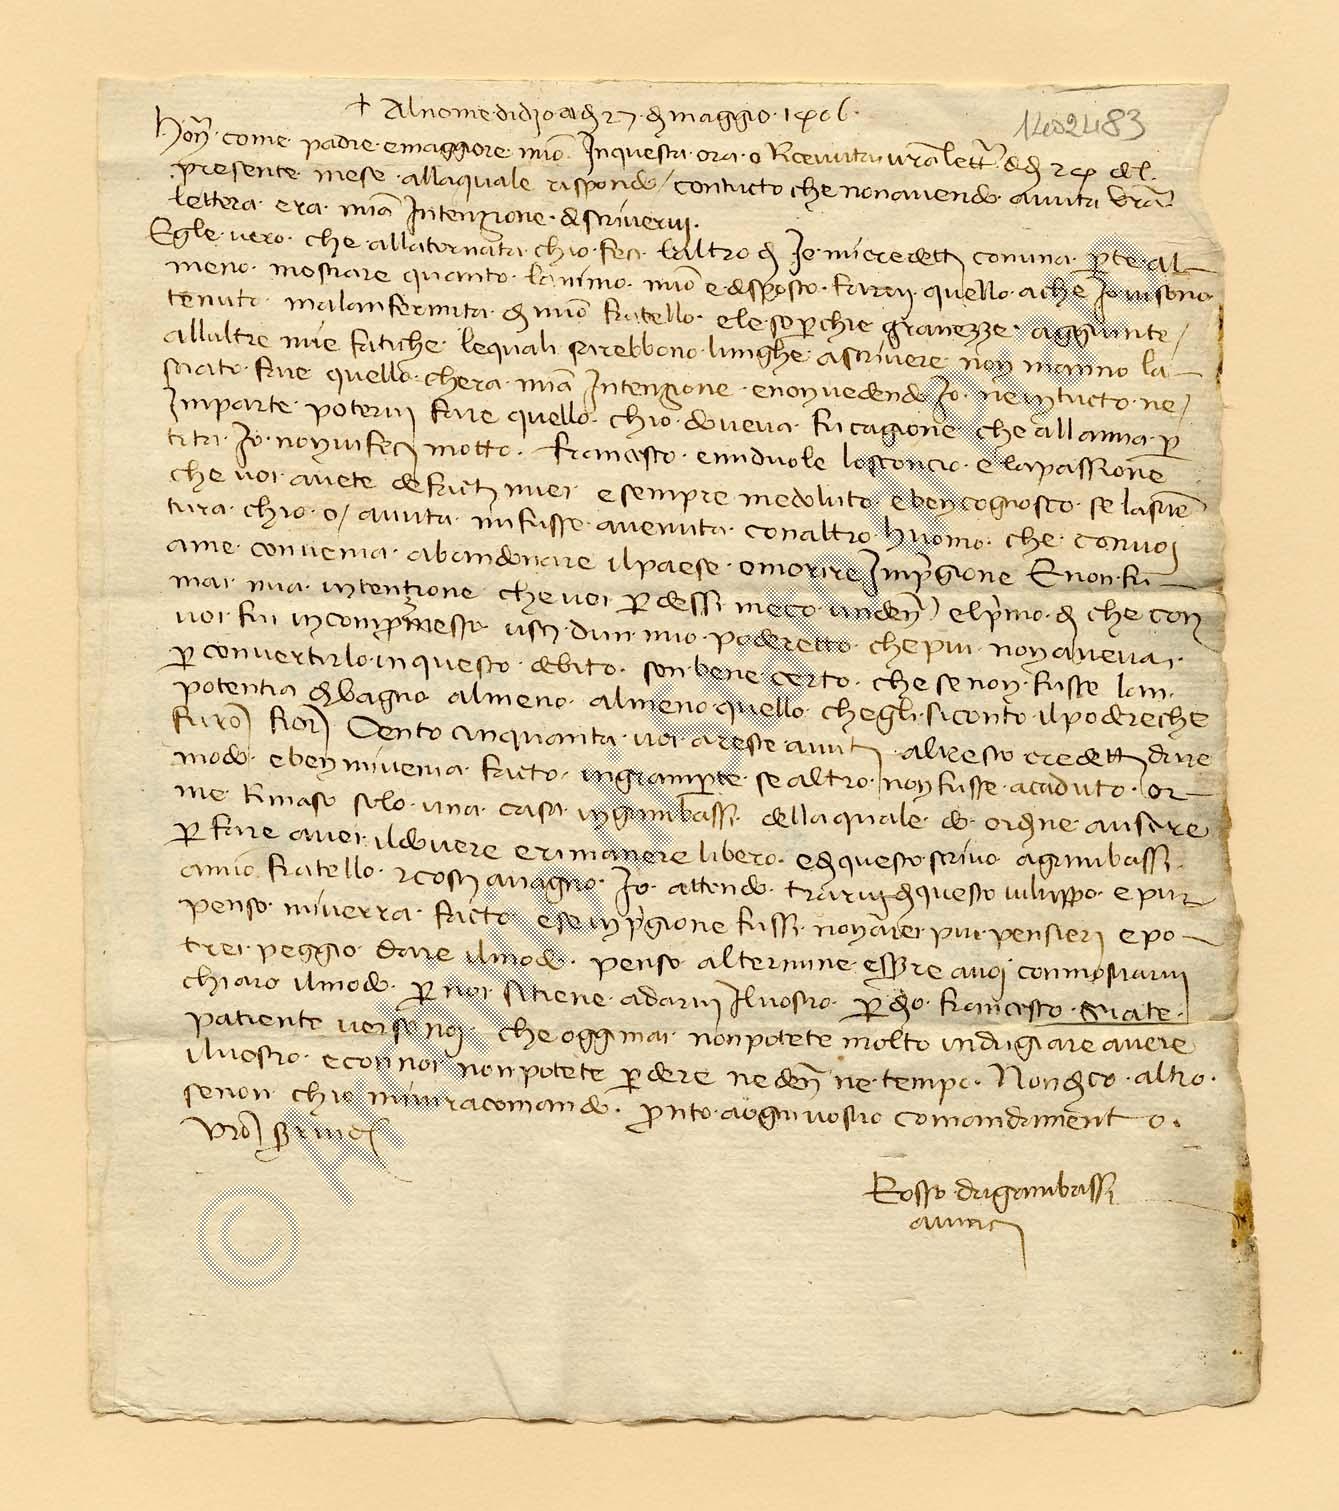 + Al nome di dio a dì 27 di maggio 1406.
1402483
Honō. come padre e maggiore mio. In questa ora o Ricevuta vrā lettā. de dì 24 del
presente mese alla quale rispondo / con tucto che non avendo avuta vrā.
lettera era mia Intenzione di scrivervi.
Egle vero che alla tornata chio feci laltro dì Io mi credetti con una pte al
meno mostrare quanto lanimo mio e disposto farvi quello a che Io vi sono
tenuto ma lanfermita di mio fratello e le soperchie gravezze aggiunte /
allaltre mie fatiche le quali sarebbono lunghe a scrivere non manno la
sciato fare quello chera mia Intenzione e non vedendo Io ne in tucto ne /
Imparte potervi fare quello chio doveva fu cagione che alla mia p
tita Io non vi feci motto. Francesco e mi duole lo sconcio e la passione
che voi avete de facti miei e sempre me doluto e ben cognosco se la
tura chio o / avuta mi fusse avenuta con altro huomo che con voi
a me convenia abandonare il paese o morire In pgione E non fu
mai mia intenzione che voi pdessi meco un den. e lpmo dì che con
voi fui in compmesso usci dun mio poderetto che piu non aveva
p convertirlo in questo debito son bene certo che se non fusse lam
potentia di bagno almeno almeno quello chegli si conto il podere che
furō fiorī Cento cinquanta voi areste avuti al resto credetti dare
modo e ben mi venia facto in gran pte se altro non fusse acaduto or
me Rimaso solo una casa in gambassi della quale do ordine a uscire
p fare a voi il dovere e rimanere libero e di questo scrivo a gambassi
a mio fratello Io attendo trarvi di questo viluppo e piu
penso mi verra facto e se in pgione fussi non arei piu pensieri e po
trei peggio dare il modo. penso al termine essere a voi con mostrarvi
chiaro il modo p noi si tiene a darvi Il vostro p dio Francesco siate
patiente verso noi che oggimai non potete molto indugiare avere
il vostro e con noi non potete pdere ne den. ne tempo. Non dico altro
se non chio mi vi racomando. pnto a ogni vostro comandamento.
vrō
Rosso da gambassi